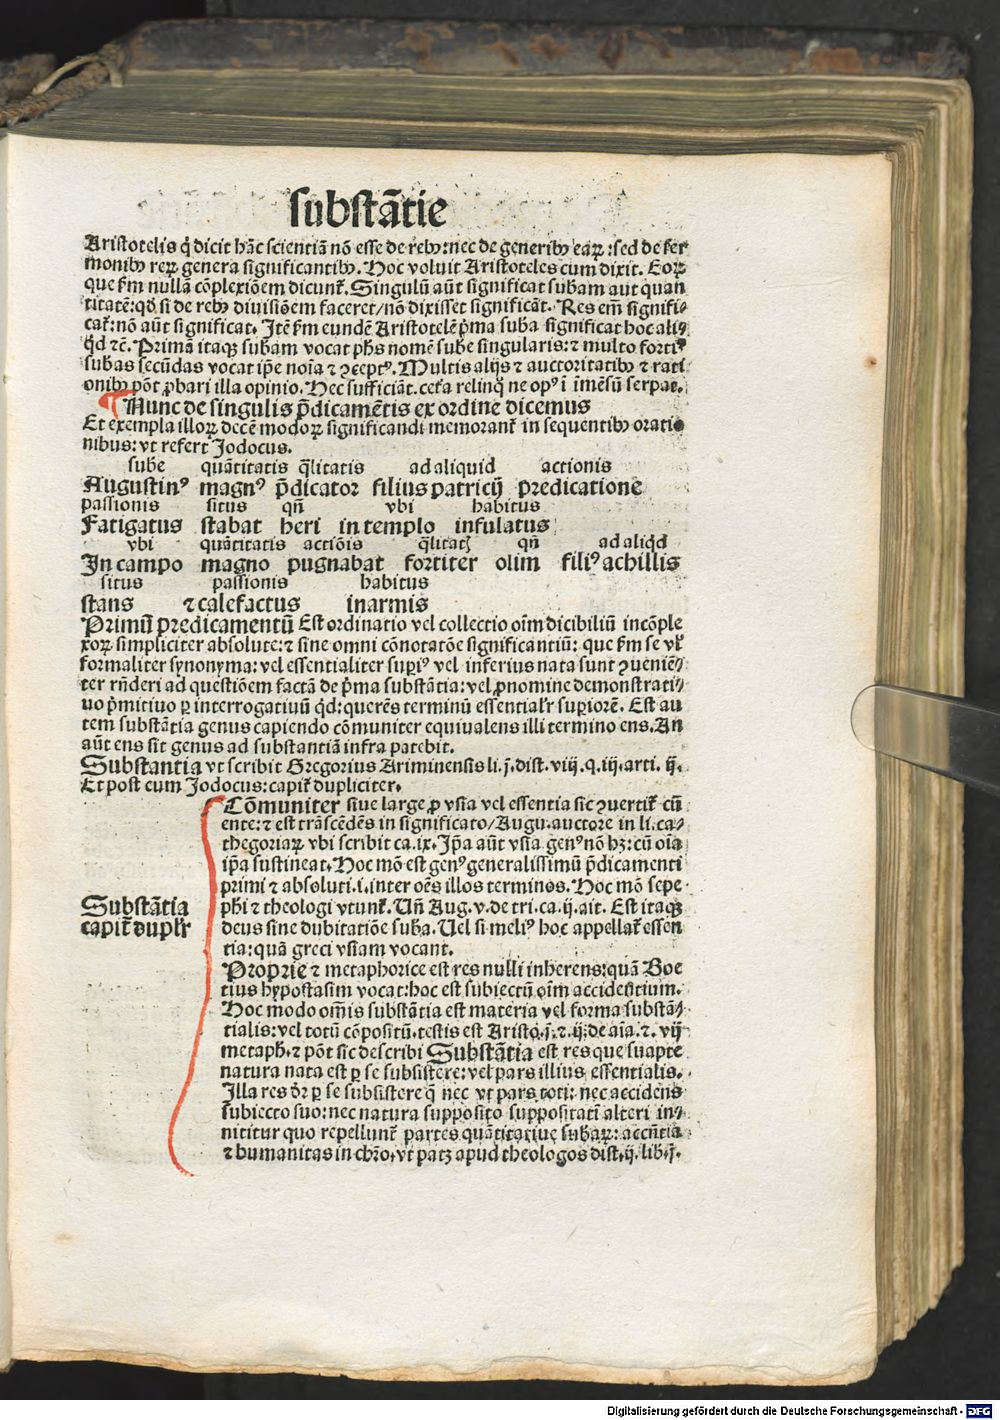 substātie
Aristotelis q̄ dicit hāc scientiā nō esse de rebꝰ: nec de generibꝰ eaꝝ: sed de ser
monibꝰ reꝝ genera significantibꝰ. Hoc voluit Aristoteles cum dixit. Eoꝝ
que ẜm nullā cōplexiōem dicunt̄. Singulū aūt significat subam aut quan
titatē: qđ si de rebꝰ diuisiōem faceret/ nō dixisset significāt. Res em̄ signifi⸗
cat̄: nō aūt significat. Itē ẜm eundē Aristotelē p̄ma suba significat hoc ali⸗
qd ⁊č. Primā itaqꝫ subam vocat phs nomē sube singularis: ⁊ multo forti⁹
subas secūdas vocat ip̄e noīa ⁊ ꝯcept⁹. Multis alijs ⁊ auctoritatibꝰ ⁊ rati
onibꝰ pōt ꝓbari illa opinio. Hec sufficiāt. cet̄a relinq̄ ne op⁹ ī imēsū serpat.
¶ Nunc de singulis p̄dicamētis ex ordine dicemus
Et exempla illoꝝ decē modoꝝ significandi memorant̄ in sequentibꝰ oratio
nibus: vt refert Jodocus.
sube quātitatis q̄litatis ad aliquid actionis
Augustin⁹ magn⁹ p̄dicator filius patricij predicatione
passionis situs qn̄ vbi habitus
Fatigatus stabat heri in templo infulatus
vbi quātitatis actiōis q̄litatꝭ qn̄ ad aliqd
In campo magno pugnabat fortiter olim fili⁹ achillis
situs passionis habitus
stans ⁊ calefactus in armis
Primū predicamentū Est ordinatio vel collectio oīm dicibiliū incōple
xoꝝ simpliciter absolute: ⁊ sine omni cōnotatōe significantiū: que ẜm se vl̄
formaliter synonyma: vel essentialiter supi⁹ vel inferius nata sunt ꝯueniē⸗
ter rn̄deri ad questiōem factā de p̄ma substātia: vel ꝓnomine demonstrati⸗
uo p̄mitiuo ꝑ interrogatiuū qd: querēs terminū essential̄r supiorē. Est au
tem substātia genus capiendo cōmuniter equiualens illi termino ens. An
aūt ens sit genus ad substantiā infra patebit.
Substantia vt scribit Gregorius Ariminensis li. j. dist. viij. q. iij. arti. ij.
Et post eum Jodocus: capit̄ dupliciter.
Substātia
capit̄ dupl̄r
Cōmuniter siue large ꝓ vsia vel essentia sic ꝯuertit̄ cū
ente: ⁊ est trāscēdēs in significato/ Augu. auctore in li. ca⸗
thegoriaꝝ vbi scribit ca. ix. Ip̄a aūt vsia gen⁹ nō hꝫ: cū oīa
ip̄a sustineat. Hoc mō est gen⁹ generalissimū p̄dicamenti
primi ⁊ absoluti. i. inter oēs illos terminos. Hoc mō sepe
phi ⁊ theologi vtunt̄. Un̄ Aug. v. de tri. ca. ij. ait. Est itaqꝫ
deus sine dubitatiōe suba. Uel si meli⁹ hoc appellat̄ essen
tia: quā greci vsiam vocant.
Proprie ⁊ metaphorice est res nulli inherens: quā Boe
tius hypostasim vocat: hoc est subiectū oīm accidentium.
Hoc modo om̄is substātia est materia vel forma substā⸗
tialis: vel totū cōpositū. testis est Aristo. ij. ⁊ ij. de aīa. ⁊. vij
metaph. ⁊ pōt sic describi Substātia est res que suapte
natura nata est ꝑ se subsistere: vel pars illius essentialis.
Illa res dr̄ ꝑ se subsistere q̄ nec vt pars toti: nec accidens
subiecto suo: nec natura supposito suppositati alteri in⸗
nititur quo repellunt̄ partes quātitatiue subaꝝ: accn̄tia
⁊ humanitas in chro. vt patꝫ apud theologos dist. ij. lib. j.
Digitalisierung gefördert durch die Deutsche Forschungsgemeinschaft - DFG